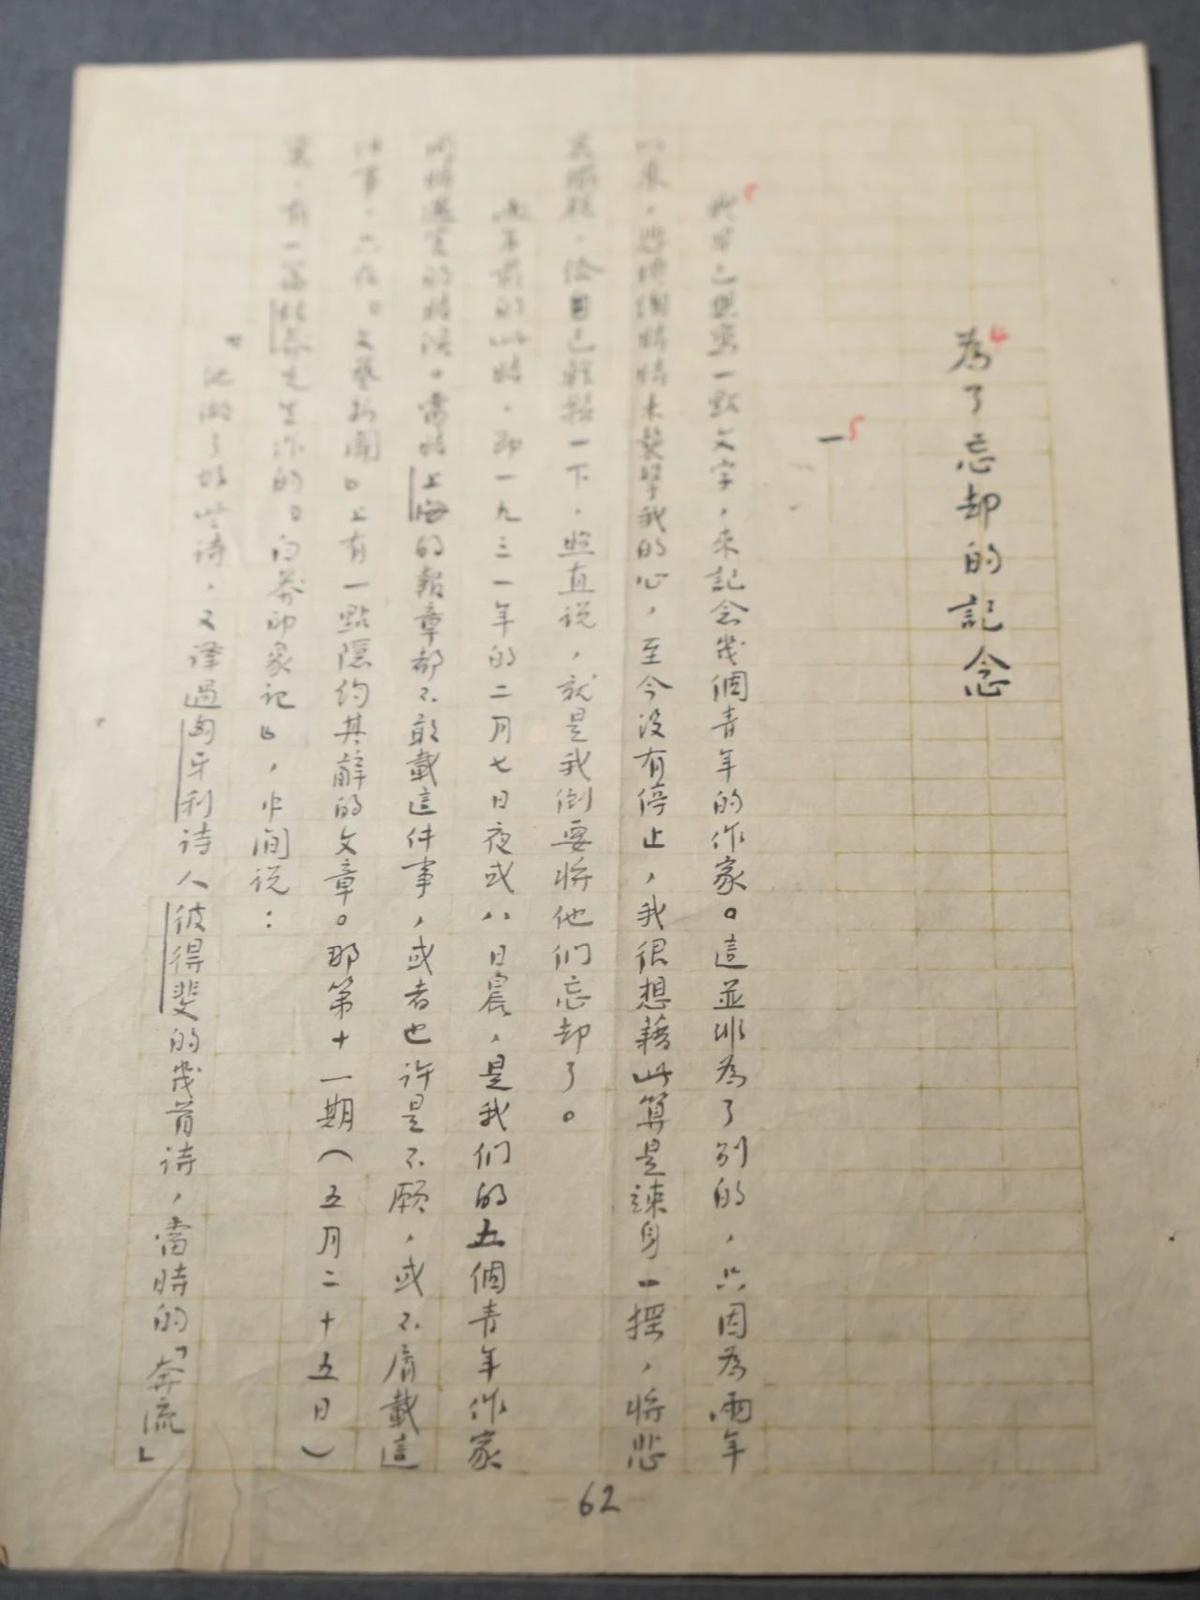 為了忘却的記念
一
我早已想寫一點文字，來記念幾個青年的作家。這並非為了別的，只因為兩年
以來，悲憤總時時來襲擊我的心，至今没有停止，我很想藉此算是竦身一摇，将悲
哀擺脱，給自己輕鬆一下，照直说，就是我倒要将他们忘却了。
兩年前的此時，即一九三一年的二月七日夜或八日晨，是我们的五個青年作家
同時遇害的時候。當時上海的報章都不敢載這件事，或者也许是不願，或不屑載這
件事，只在『文藝新聞』上有一點隱约其辭的文章。那第十一期（五月二十五日）
裏，有一篇林莽先生作的『白莽印象记』，中间说：
“他做了好些诗，又译過匈牙利诗人彼得斐的幾首诗，當時的「奔流」
62
4
5